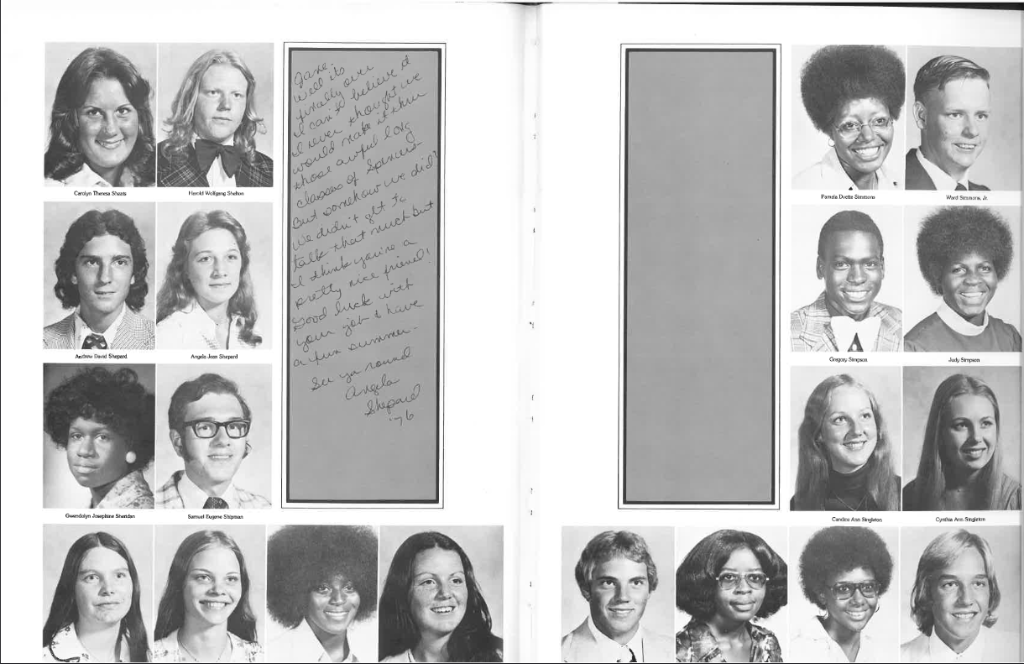 Carolyn Theresa Sheats
Harold Wolfgang Shelton
Andrew David Shepard
Angela Jean Shepard
Gwendolyn Josephine Sheridan
Samuel Eugene Shipman
Jane,
Well its
finally over
I can't believe it
I never thought we
would make it thru
those awful long
classes of Spanish
But somehow we did!
We didn't get to
talk that much but
I think you're a
pretty nice friend!
Good luck with
your job & have
a fun summer.
See ya round
Angela
Shepard
'76
Pamela Simmons
Ward Simmons, Jr.
Gregory Simpson
Judy Simpson
Candice Ann Singleton
Cynthia Ann Singleton